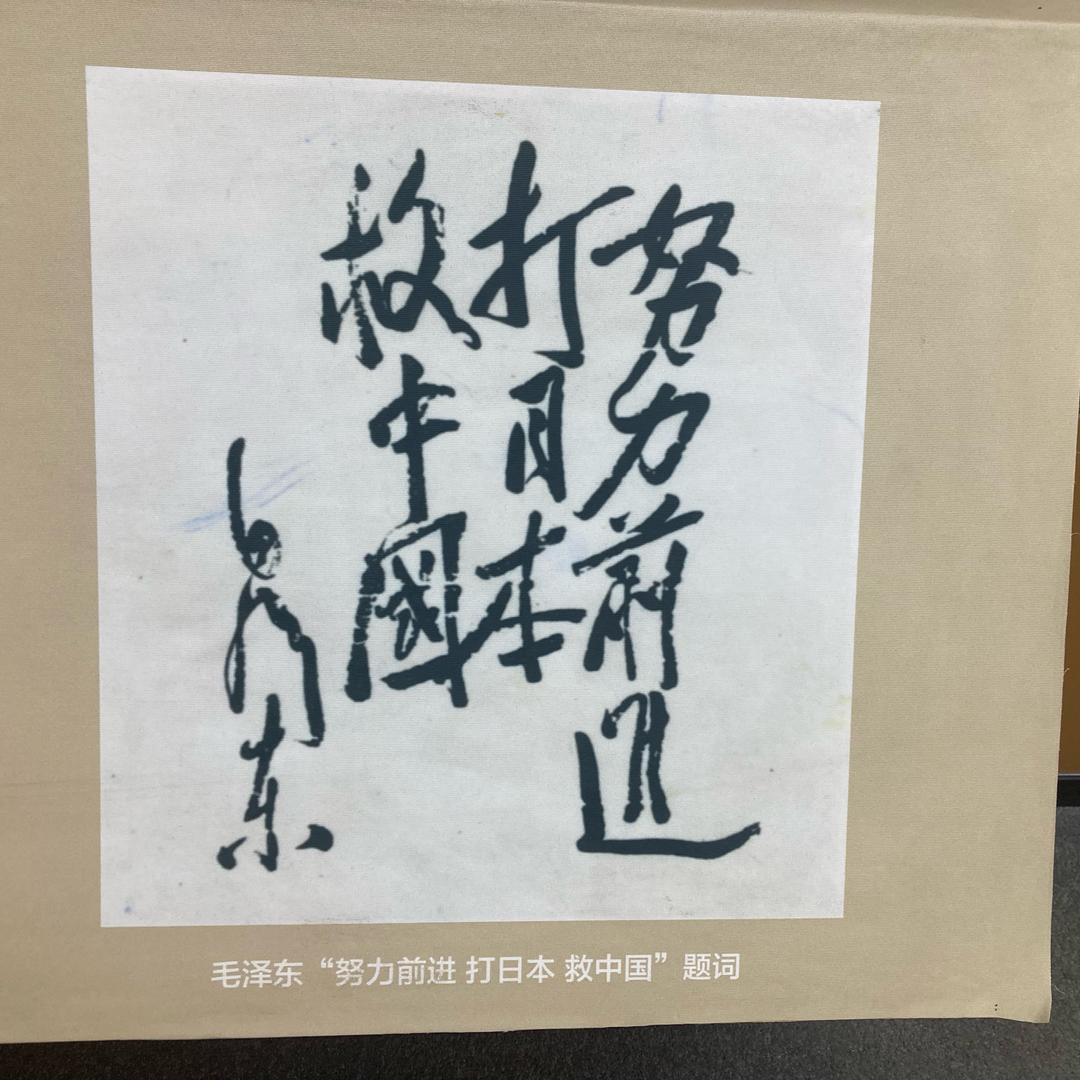 努力前進
打日本
救中國
毛泽东
毛泽东“努力前进 打日本 救中国”题词